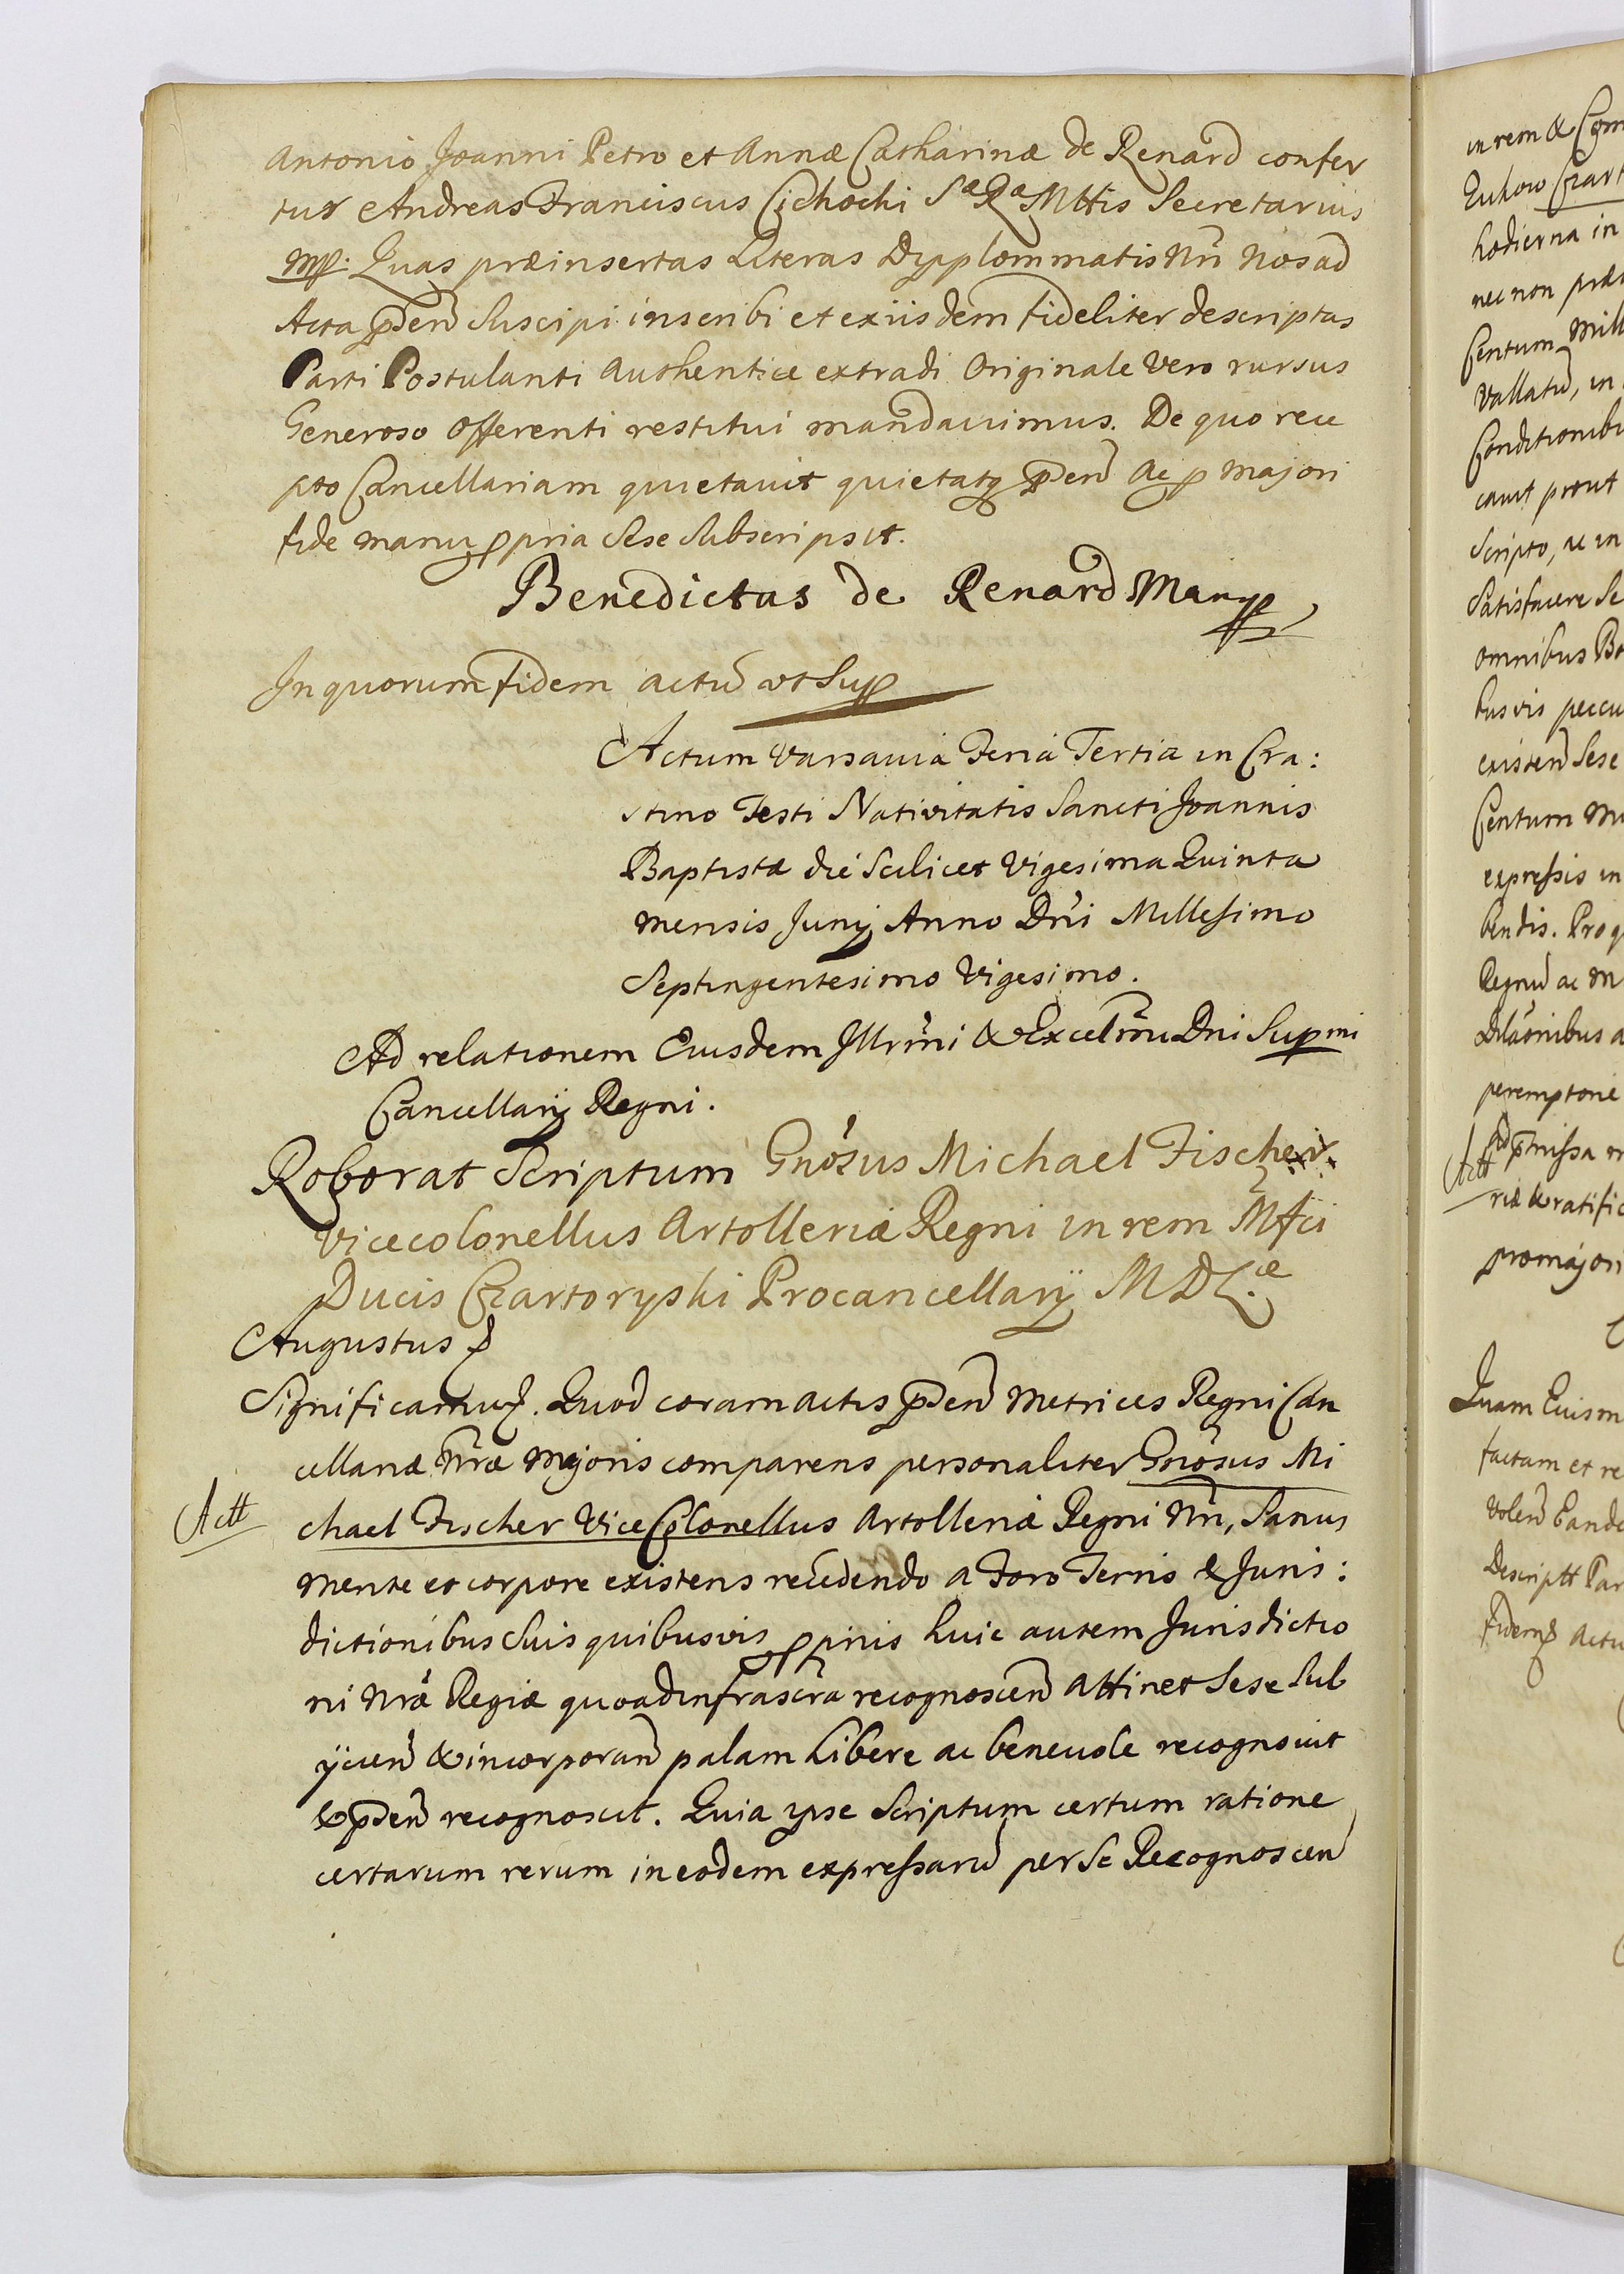 Antonio Joanni Petro et Annæ Catharinæ de Renard confer
tur Andreas Franciscus Cichocki Sæ Ræ Mttis Secretarius
mp. Quas præinsertas Literas Dypplommatis Nri Nos ad
Acta pñden Suscipi inscribi et exiisdem fideliter descriptas
Parti Postulanti Authentice extradi Originale Vero rursus
Generoso Offerenti restitui mandavimus. De quo rece
pto Cancellariam quietavit quietatq pñden Ac p majori
fide manu ppria Sese Subscripsit.
Benedictus de Renard Manup
In quorum fidem actu ut Sup
Actum Varsaviæ Feria Tertia in Cra:
stino Festi Nativitatis Sancti Joannis
Baptistæ die Scilicet Vigesima Quinta
mensis Junij Anno Dni Millesimo
Septingentesimo Vigesimo.
Ad relationem Eiusdem Illrmi & Excelrmi Dni Supmi
Cancellarij Regni.
Roborat Scriptum Gnosus Michael Fischer
Vicecolonellus Artolleriæ Regni in rem Mfci
Ducis Czartoryski Procancellarij M D L.æ
Augustus
Significamus. Quod coram actis pñden Metrices Regni Can
cellariæ Nræ Majoris comparens personaliter Gnosus Mi
Actt
chael Fischer Vice Colonellus Artolleriæ Regni Nri, Sanus
mente et corpore existens recedendo a Foro Terris & Juris:
dictionibus Suis quibusvis pprijs huic autem Jurisdictio
ni Nræ Regiæ quoad infrascra recognoscen attinet Sese Sub
ijcien & incorporan palam Libere ac benevole recognovit
& pñden recognoscit. Quia ipse Scriptum certum ratione
certarum rerum in eodem expressaru per Se Recognoscen
in rem &
hodierna in
nec non
Centum Mill
Vallatu, in
cavit prout
Scripto, ac in
Satisfacere Se
omnibus Bo
existen Sese
Centum
expressis in
bendis. Pro q
Regnu ac M
Dilaonibus a
peremptorie
Actt
riæ & ratific
pro majori
Quam Eiusm
factam et re
Volen Eande
Descriptt Par
fidem Actu